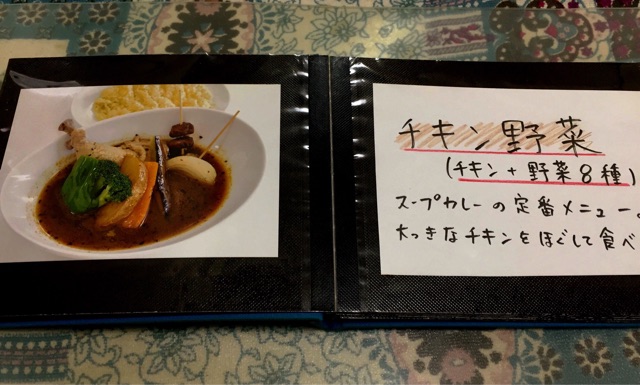 チキン野菜
(チキン+野菜8種)
スープカレーの定番メニュー
大っきなチキンをほぐして食べ